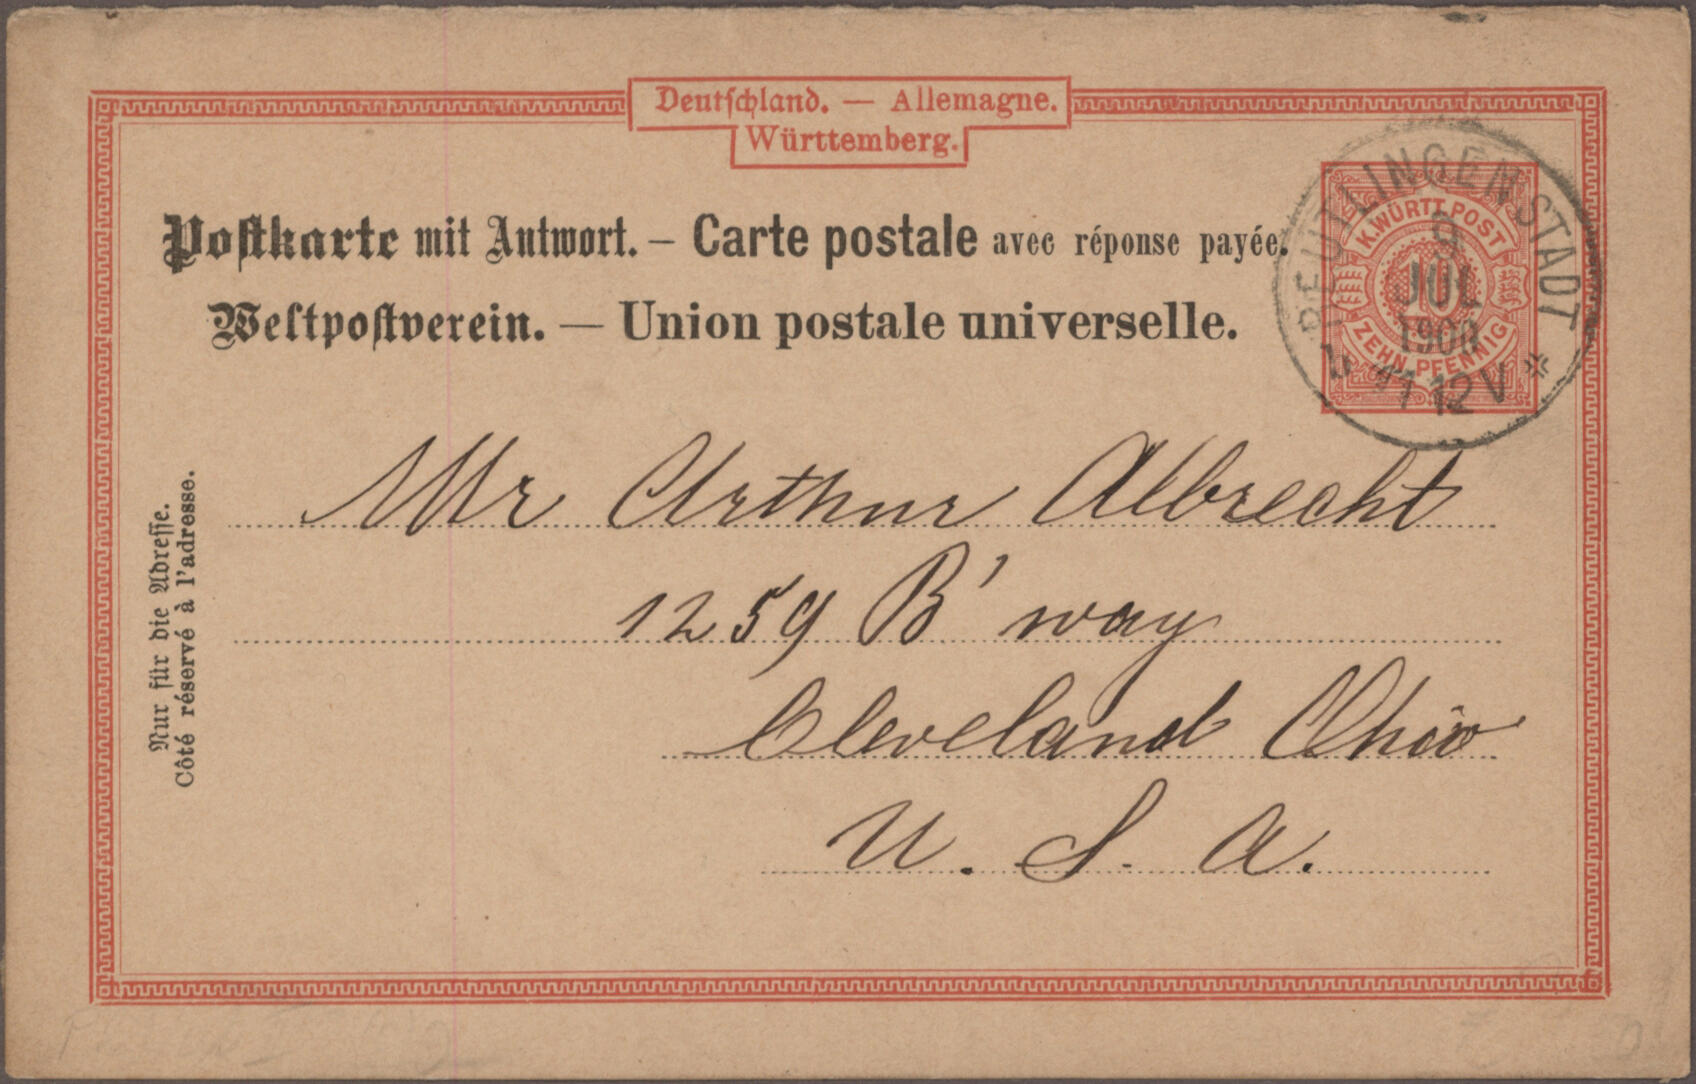 Deutschland. — Allemagne.
Württemberg.
Postkarte mit Antwort. – Carte postale avec réponse payée.
Weltpostverein. — Union postale universelle.
K. WÜRTT. POST
10
ZEHN PFENNIG
REUTLINGEN STADT
9
JUL
1900
11 12 V
Nur für die Adresse.
Côté réservé à l'adresse.
Mr Arthur Albrecht
1259 B'way
Cleveland Ohio
U. S. A.